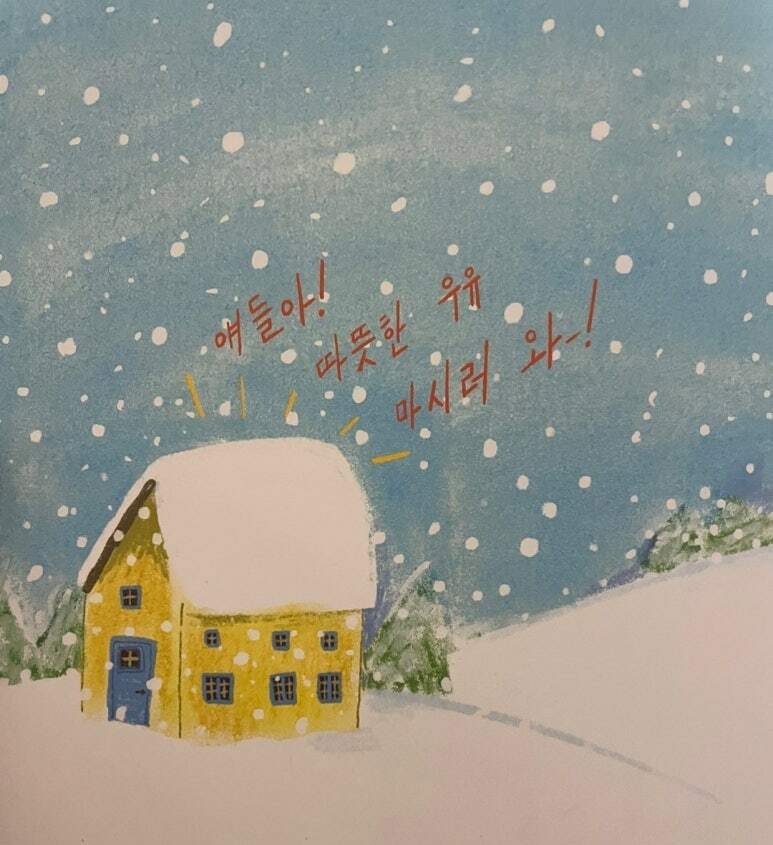 얘들아!
따뜻한 우유
마시러 와~!